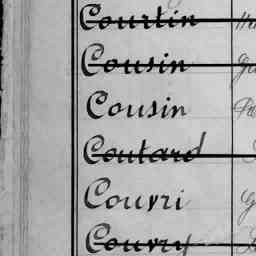 Courtin
Cousin
Cousin
Coutard
Couvri
Couvry